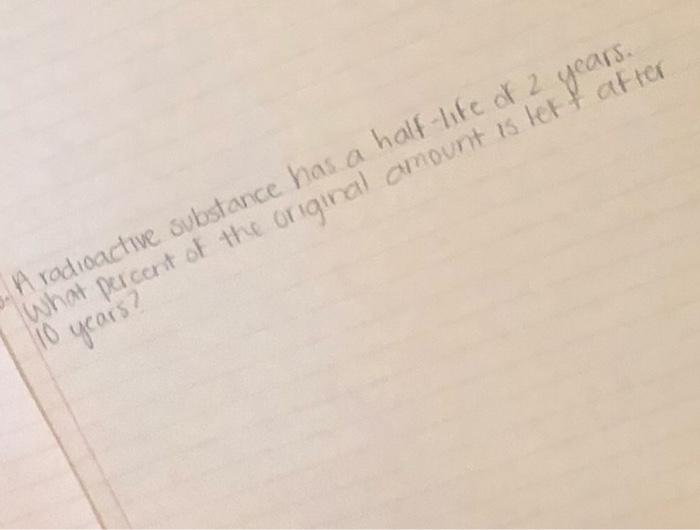 A radioactive substance has a half-life of 2 years.
What percent of the original amount is left after
10 years?